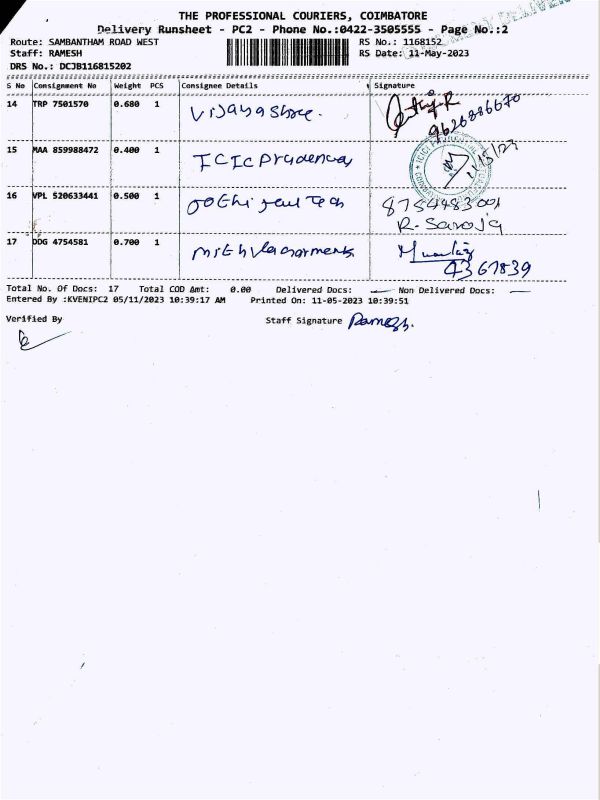 THE PROFESSIONAL COURIERS, COIMBATORE
Delivery Runsheet - PC2 - Phone No.:0422-3505555 - Page No.:2
Route: SAMBANTHAM ROAD WEST RS No.: 1168152
Staff: RAMESH RS Date: 11-May-2023
DRS No.: DCJB116815202
S No Consignment No Weight PCS Consignee Details Signature
14 TRP 7501570 0.680 1 Vijayashree.
9626886670
15 MAA 859988472 0.400 1 ICIC Prudencey
11/5/23
16 VPL 520633441 0.500 1 Jothi Tech 8754483001
R. Saroja
17 DDG 4754581 0.700 1 garments
4367839
Total No. Of Docs: 17 Total COD Amt: 0.00 Delivered Docs: — Non Delivered Docs: —
Entered By :KVENIPC2 05/11/2023 10:39:17 AM Printed On: 11-05-2023 10:39:51
Verified By Staff Signature Ramesh.